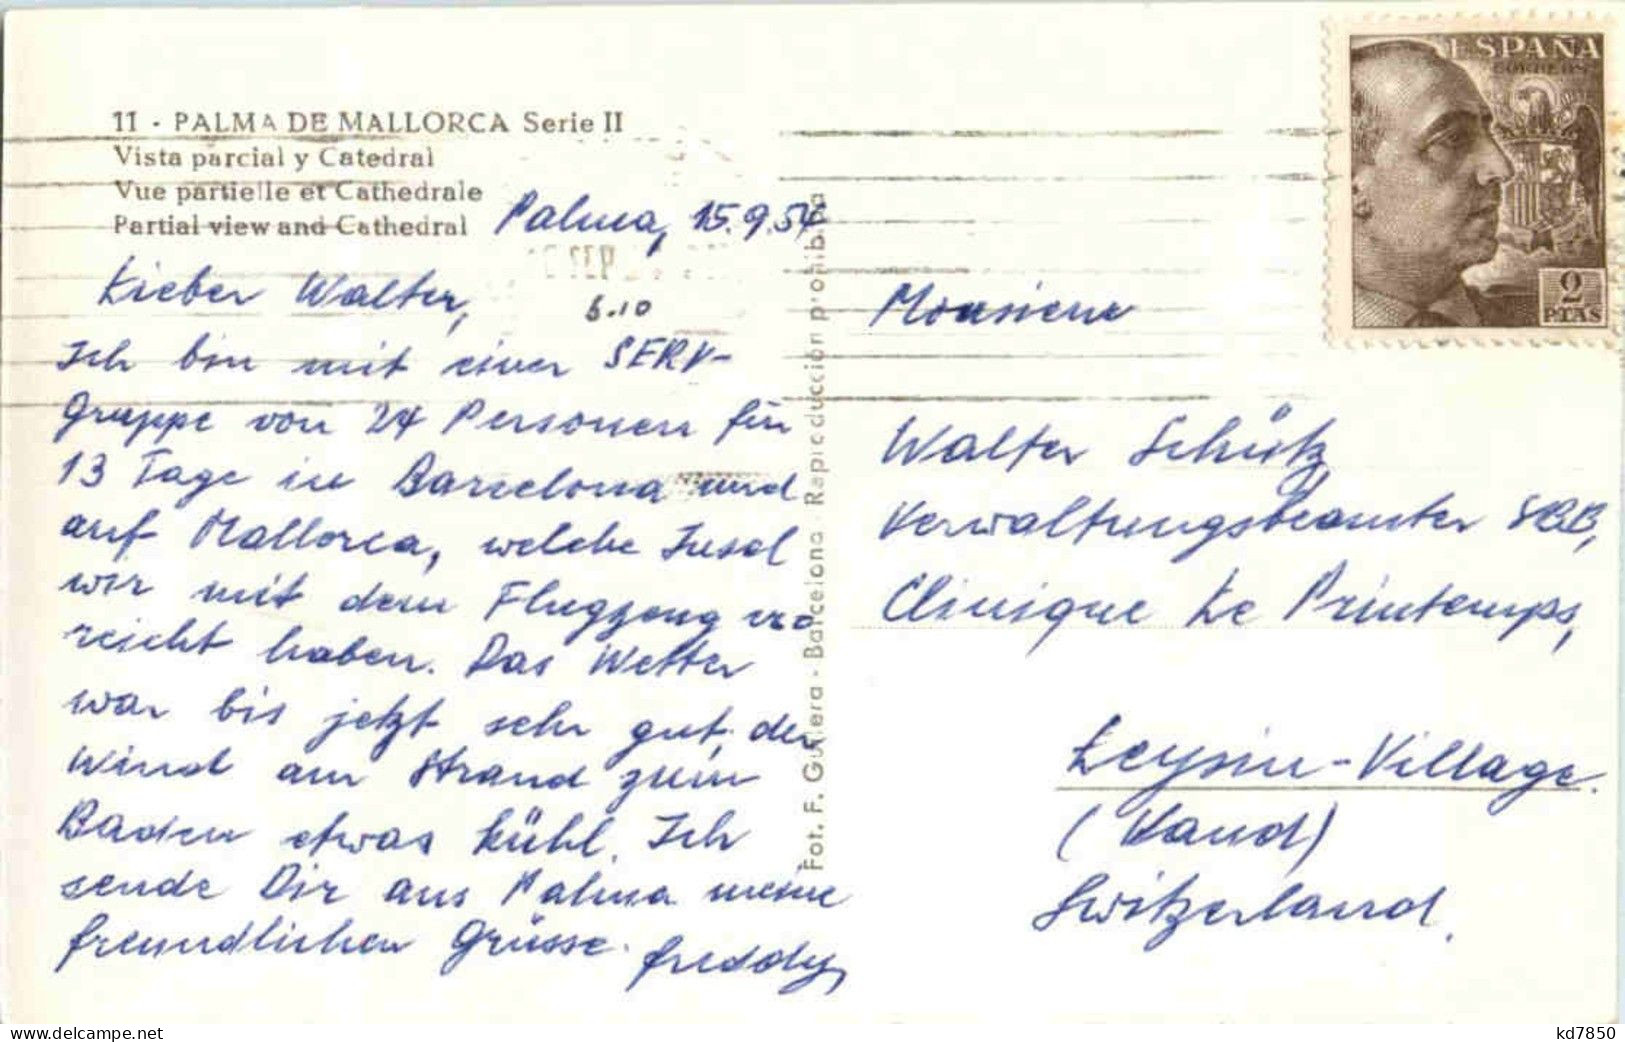 11 - PALMA DE MALLORCA Serie II
Vista parcial y Catedral
Vue partielle et Cathedrale
Partial view and Cathedral
Palma, 15.9.54
Lieber Walter,
6.10
Ich bin mit einer SERV-
gruppe von 24 Personen für
13 Tage in Barcelona und
auf Mallorca, welche Insel
wir mit dem Flugzeug er
reicht haben. Das Wetter
war bis jetzt sehr gut, der
Wind am Strand zum
Baden etwas kühl. Ich
sende Dir aus Palma meine
freundlichen Grüsse. Freddy
Fot. F. Guilera - Barcelona - Reproducción prohibida
ESPAÑA
CORREOS
2
PTAS
Monsieur
Walter Schütz
Verwaltungsbeamter SBB,
Clinique Le Printemps,
Leysin-Village.
(Vaud)
Switzerland.
delcampe.net
kd7850